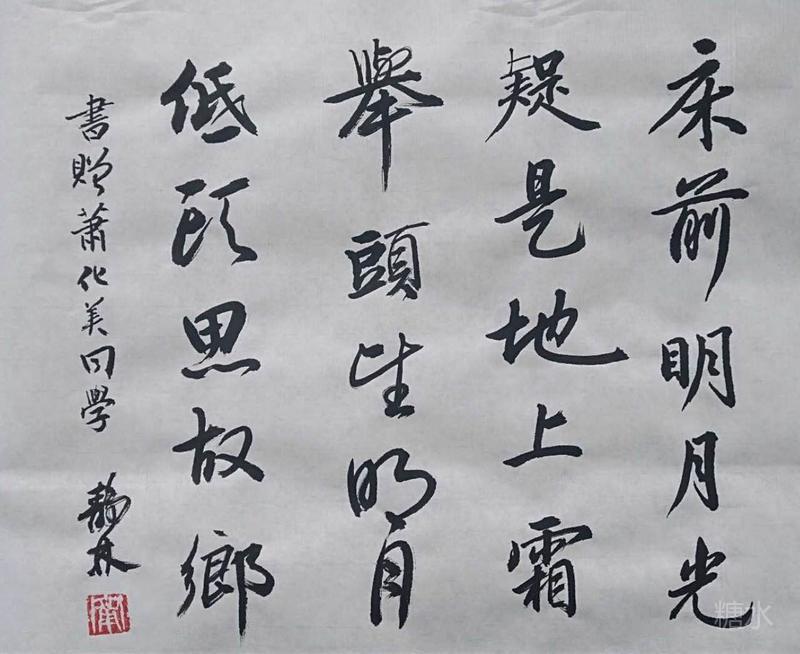 床前明月光
疑是地上霜
舉頭望明月
低頭思故鄉
書贈蕭化美同學
林
糖水